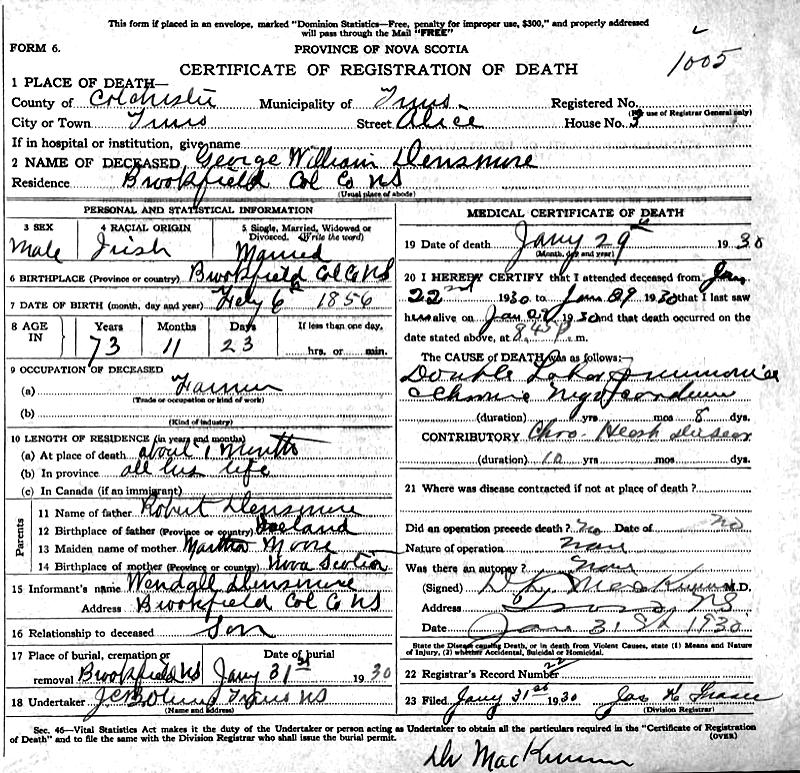 This form if placed in an envelope, marked "Dominion Statistics—Free, penalty for improper use, $300," and properly addressed
will pass through the Mail "FREE"
FORM 6.
PROVINCE OF NOVA SCOTIA
1005
CERTIFICATE OF REGISTRATION OF DEATH
1 PLACE OF DEATH—
County of Colchester Municipality of Truro Registered No.
(For use of Registrar General only)
City or Town Truro Street Alice House No. 3
If in hospital or institution, give name
2 NAME OF DECEASED George William Densmore
Residence Brookfield Col Co NS
(Usual place of abode)
PERSONAL AND STATISTICAL INFORMATION
3 SEX
Male
4 RACIAL ORIGIN
Irish
5 Single, Married, Widowed or
Divorced. (Write the word)
Married
6 BIRTHPLACE (Province or country) Brookfield Col Co NS
7 DATE OF BIRTH (month, day and year) Feby 6th 1856
8 AGE IN
Years Months Days If less than one day,
73 11 23 hrs. or min.
9 OCCUPATION OF DECEASED
(a) Farmer
(Trade or occupation or kind of work)
(b)
(Kind of industry)
10 LENGTH OF RESIDENCE (in years and months)
(a) At place of death about 1 Month
(b) In province all his life
(c) In Canada (if an immigrant)
Parents
11 Name of father Robert Densmore
12 Birthplace of father (Province or country) Ireland
13 Maiden name of mother Martha Moore
14 Birthplace of mother (Province or country) Nova Scotia
15 Informant's name Wendall Densmore
Address Brookfield Col Co NS
16 Relationship to deceased Son
17 Place of burial, cremation or Date of burial
removal Brookfield NS Jany 31st 1930
18 Undertaker Truro NS
(Name and address)
MEDICAL CERTIFICATE OF DEATH
19 Date of death Jany 29th 1930
(Month, day and year)
20 I HEREBY CERTIFY that I attended deceased from Jan
22nd 1930 to Jan 29 1930 that I last saw
him alive on Jan 1930 and that death occurred on the
date stated above, at 8.45 P m.
The CAUSE of DEATH was as follows:
Double Lobar Pneumonia
Chronic Myocardium
(duration) yrs mos 8 dys.
CONTRIBUTORY Chro. Heart disease
(duration) 10 yrs mos dys.
21 Where was disease contracted if not at place of death?
Did an operation precede death? no Date of no
Nature of operation None
Was there an autopsy? None
(Signed) MacKinnon M.D.
Address Truro, NS
Date Jan 31 1930
State the Disease causing Death, or in death from Violent Causes, state (1) Means and Nature
of Injury, (2) whether Accidental, Suicidal or Homicidal.
22 Registrar's Record Number 22
23 Filed Jany 31st 1930 Jas
(Division Registrar)
Sec. 46—Vital Statistics Act makes it the duty of the Undertaker or person acting as Undertaker to obtain all the particulars required in the "Certificate of Registration
of Death" and to file the same with the Division Registrar who shall issue the burial permit.
(OVER)
Dr MacKinnon